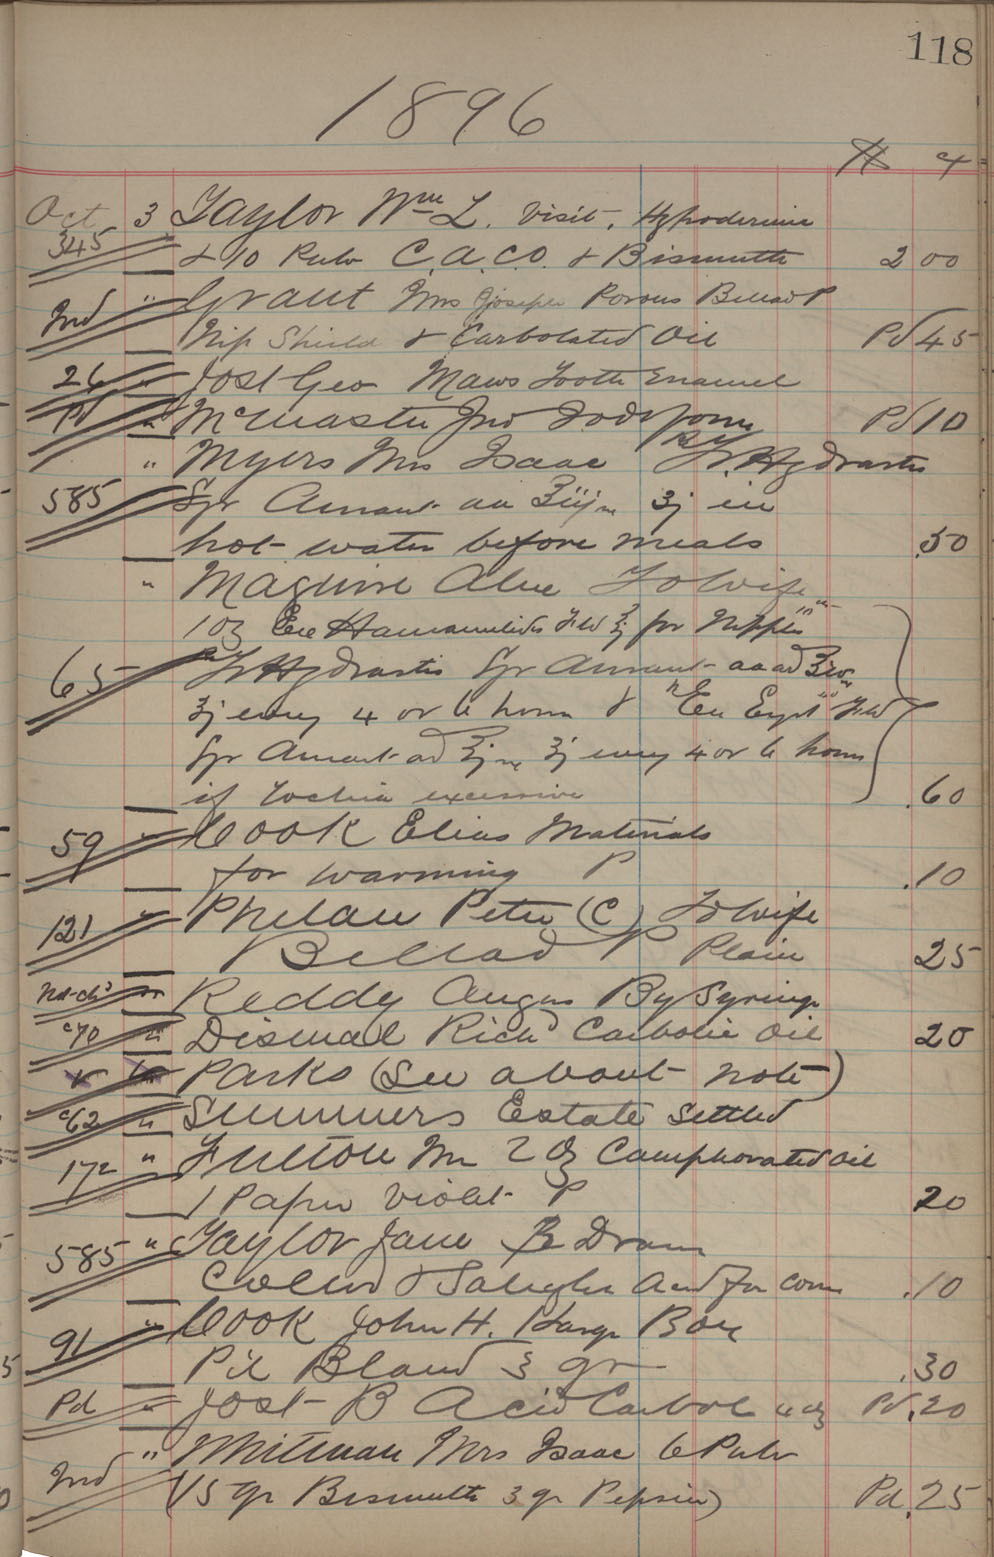 118
1896
$ ¢
Oct 3 Taylor Wm L. Visit, Hypodermic
345 & 10 Pulv C.A.CO. & Bismuth 2 00
Ind " Grant Mrs Joseph Porous Bellad P
Nip Shield & Carbolated Oil Pd 45
26 " Jost Geo Maws Tooth Enamel
Pd " McMaster Jno Iodoform Pd 10
" Myers Mrs Isaac Rx Tr. Hydrastis
585 Syr Aurant aa ʒiij m ʒj in
hot water before meals .50
" Maguire Alex To Wife
1 oz Ext Hamamelidis Fld ℥j for Nipples
65 Tr Hydrastis Syr Aurant aa ad ℥iv m
ʒj every 4 or 6 hours & Ext Ergot Fld
Syr Aurant ad ℥j m ʒj every 4 or 6 hours
if Lochia excessive .60
59 " Cook Elias Materials
for warming P .10
121 " Phelan Peter (C) To Wife
Bellad P Plain 25
" Reddy Angus By Syringe
c70 " Dismal Rich Carbolic Oil 20
" Parks (See about note)
c62 " Summers Estate Settled
172 " Fulton Wm 2 oz Camphorated Oil
1 Paper Violet P 20
585 " Taylor Jane Rx Dram
Collod & Salicylic Acid for corns .10
91 " Cook John H. Large Box
Pil Blaud 3 gr .30
Pd " Jost B Acid Carbol 4 oz Pd .20
Ind " Whitman Mrs Isaac 6 Pulv
(15 gr Bismuth 3 gr Pepsin) Pd .25